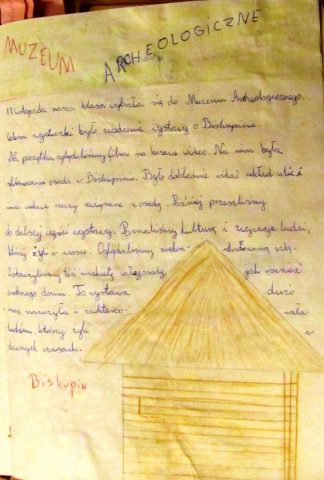 MUZEUM ARCHEOLOGICZNE
17 listopada nasza klasa wybrała się do Muzeum Archeologicznego.
Celem wycieczki było zwiedzenie wystawy o Biskupinie.
Na początku oglądaliśmy film na kasecie video. Na nim była
osada w Biskupinie. Było dokładnie widać układ ulic i
inne ciekawe rzeczy związane z osadą. Później przeszliśmy
do dalszej części wystawy. Poznaliśmy kulturę i zwyczaje ludzi,
którzy żyli w osadzie. Oglądaliśmy
Zobaczyliśmy też makietę całej osady, jak również
domu. Ta wystawa dużo
nas nauczyła i
ludźmi, którzy żyli w
dawnych czasach.
Biskupin